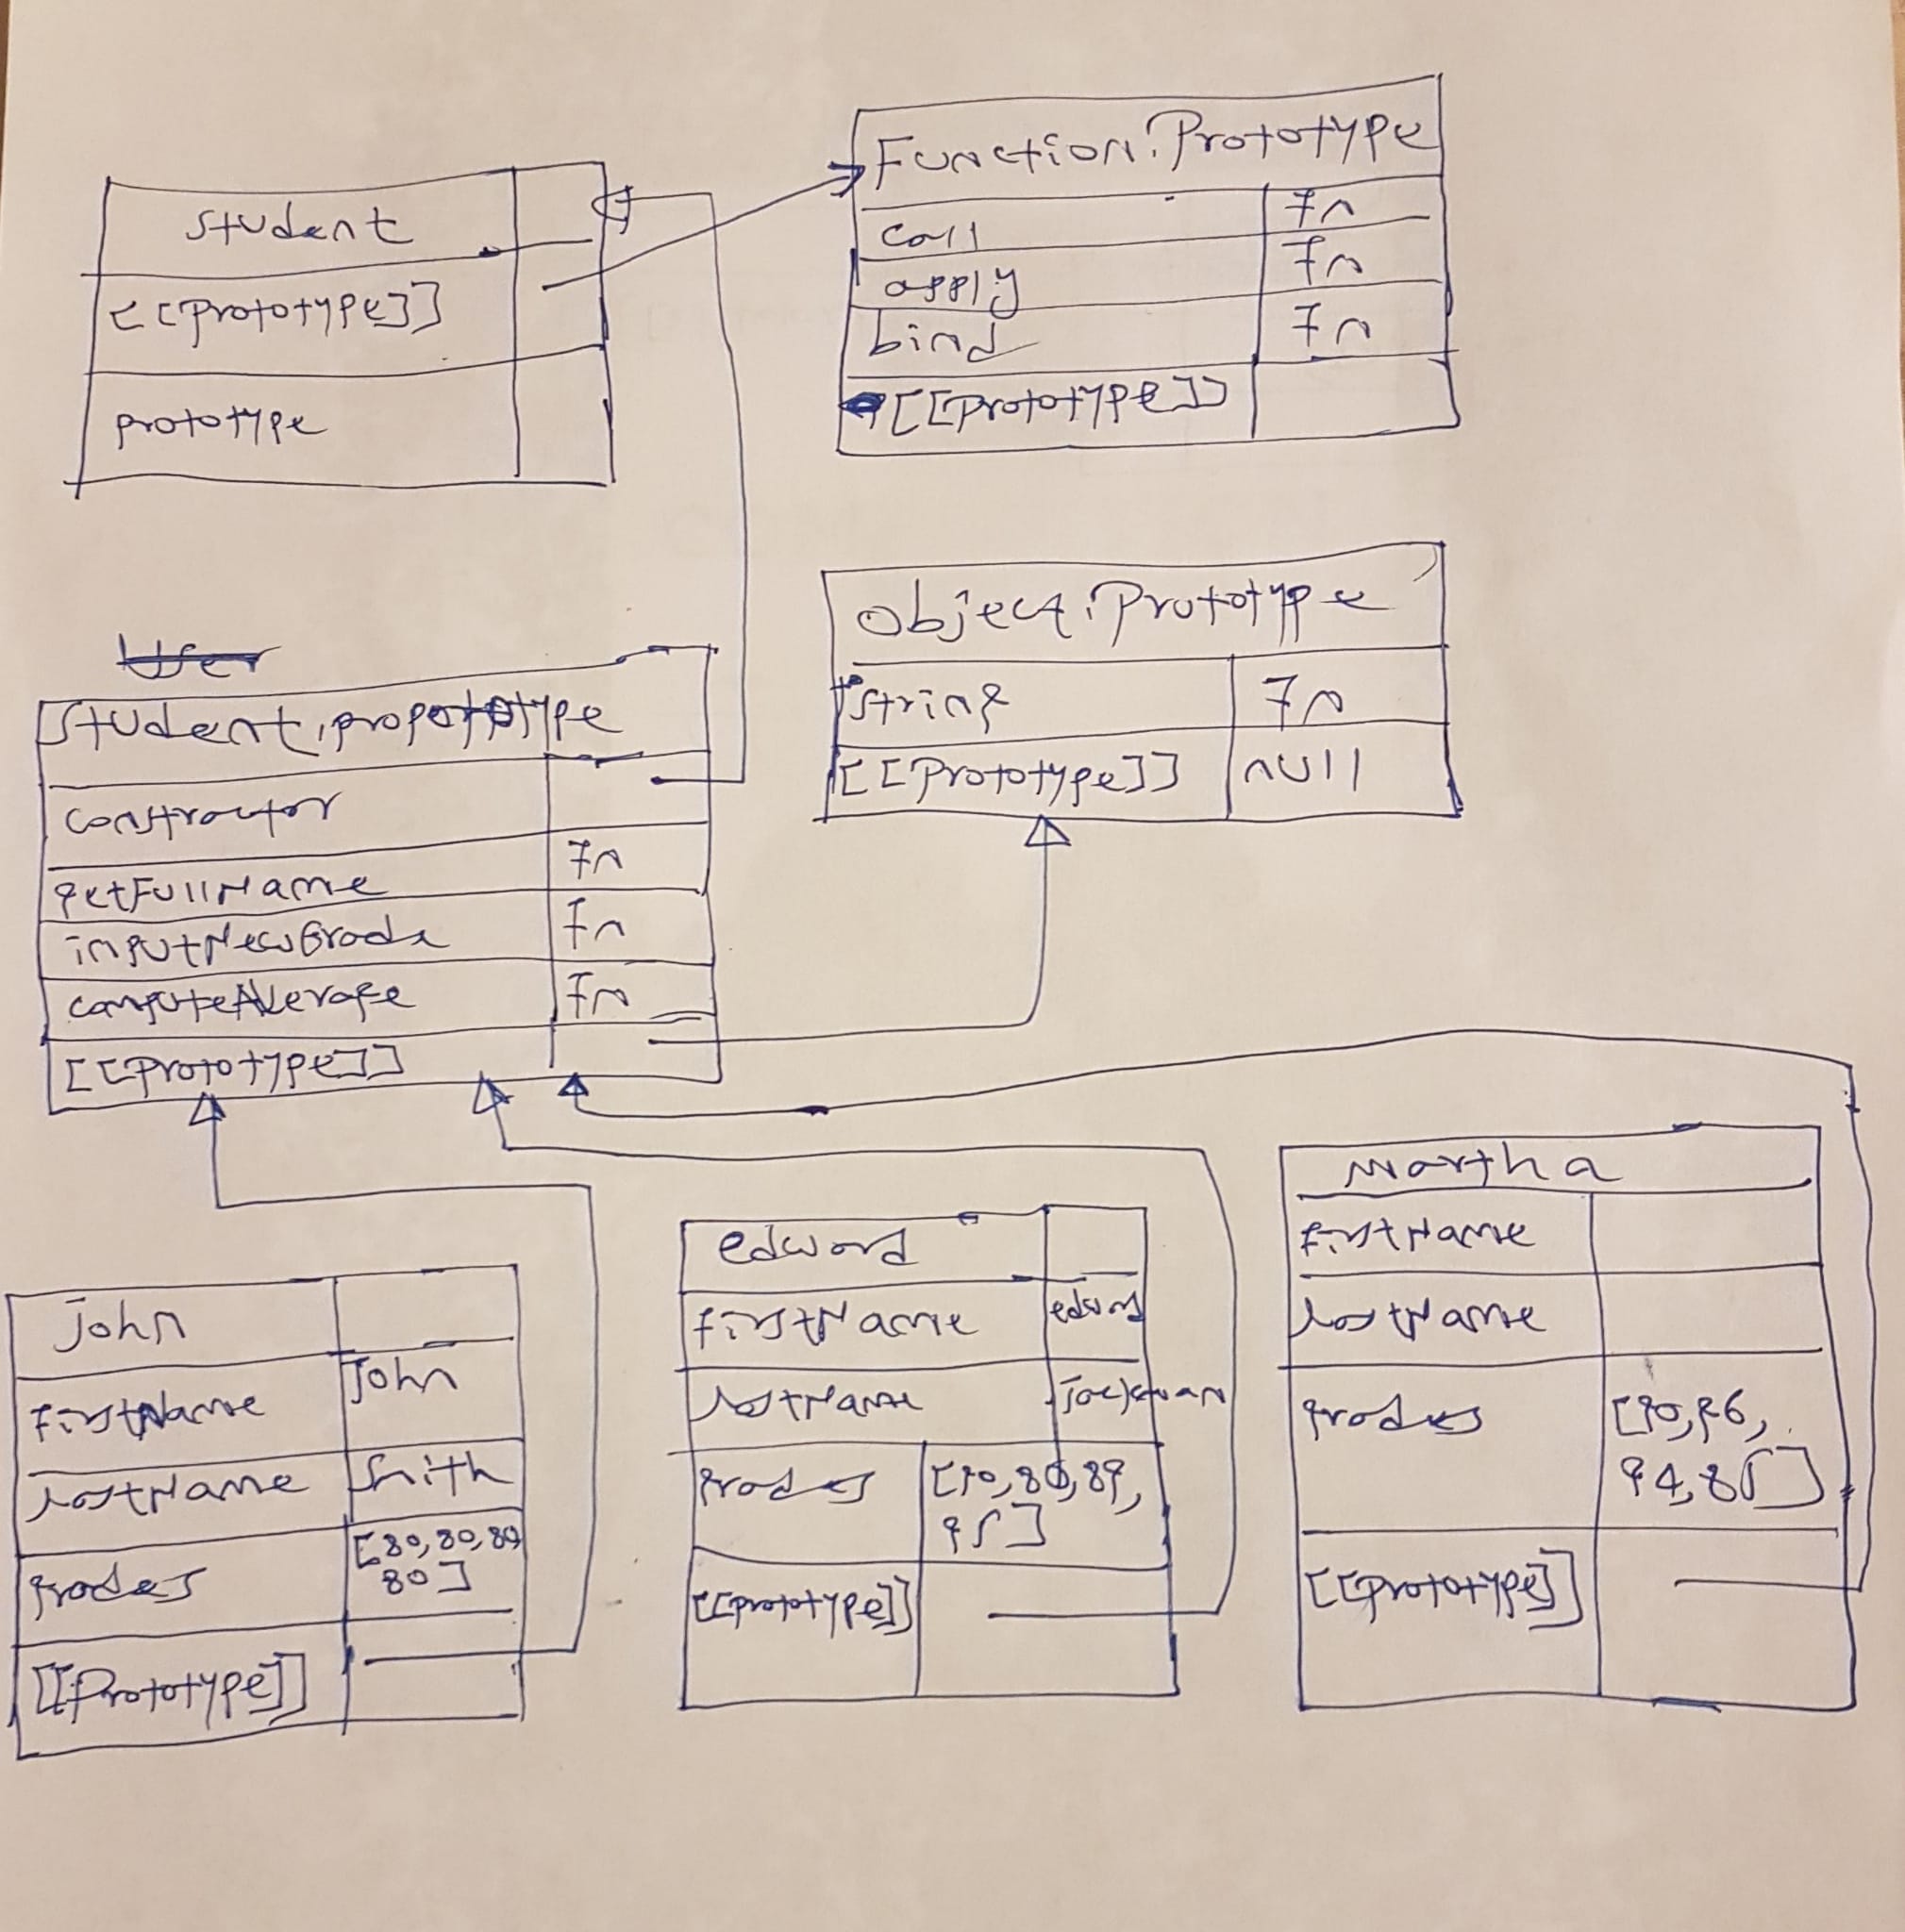 student
[[prototype]]
prototype
Function.Prototype
call Fn
apply Fn
bind Fn
[[prototype]]
Object.Prototype
tostring Fn
[[prototype]] null
User
student.propotptotype
constractor
getFullName Fn
inputNewGrade Fn
computeAverage Fn
[[prototype]]
john
firstName John
lastName Smith
grades [80,80,89
80]
[[Prototype]]
edward
firstName
lastName
grades [90,80,89,
95]
[[prototype]]
martha
firstName
lastName
grades
94,85]
[[prototype]]